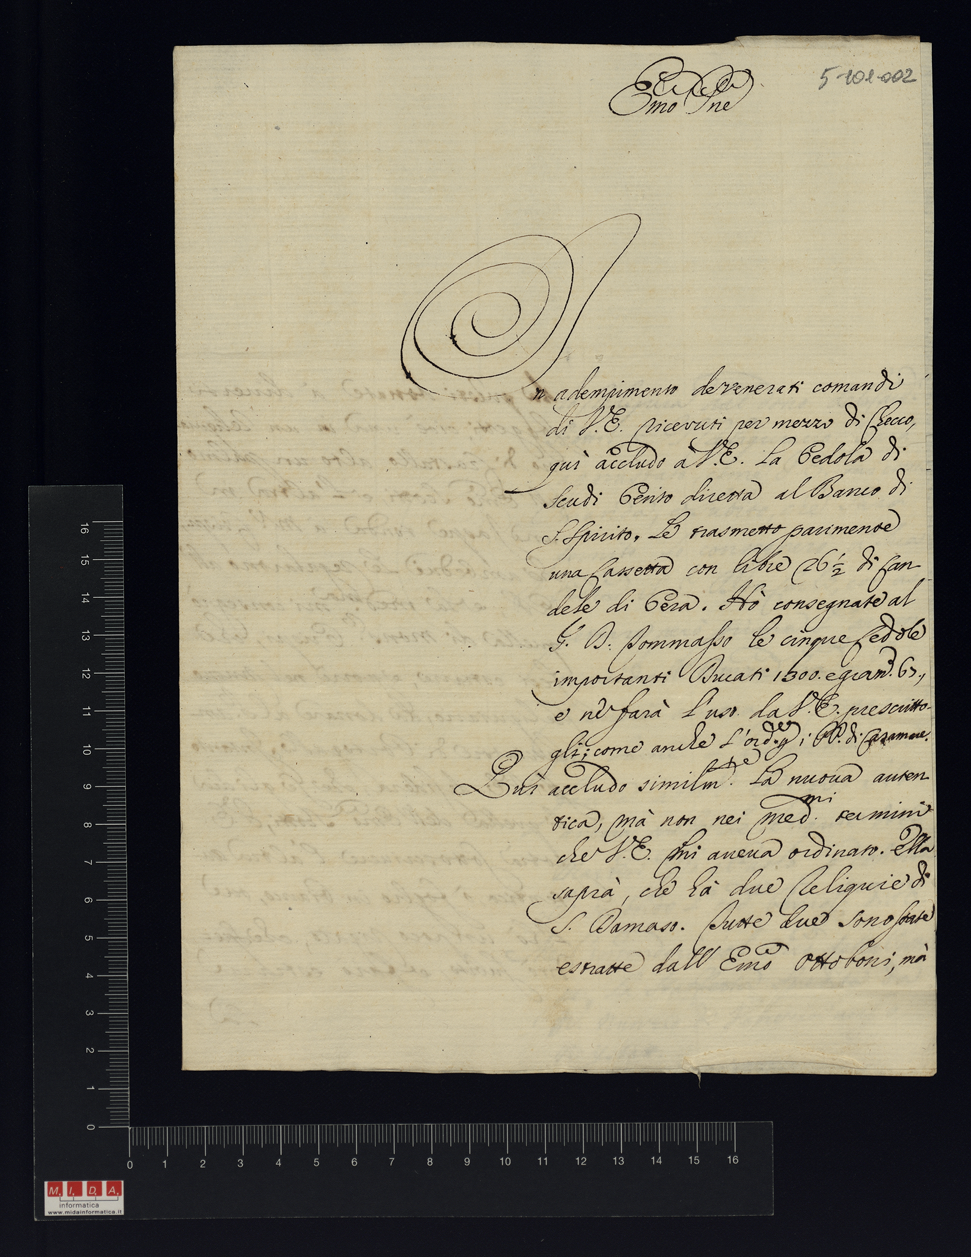 5-101-002
Emo Sne
In adempimento de venerati comandi
di V.E. ricevuti per mezzo di Checco,
quì accludo à V.E. la Cedola di
scudi Cento diretta al Banco di
S. Spirito. Le trasmetto parimente
una Cassetta con libre 26 1/2 di Can-
dele di Cera. Hò consegnate al
S. D. Tommasso le cinque Cedole
importanti Ducati 1300. e gran. 67.,
e ne farà l'uso da V.E. prescritto-
gli; come anche l'ord.e p i PP. di Caramare.
Quì accludo similm.te La nuova auten-
tica, mà non nei med.mi termini
che V.E. mi aveva ordinato. Ella
saprà, che hà due Reliquie di
S. Damaso. Tutte due sono state
estratte dall' Emo Ottoboni, mà
16
15
14
13
12
11
10
9
8
7
6
5
4
3
2
1
0
0 1 2 3 4 5 6 7 8 9 10 11 12 13 14 15 16
M. I. D. A.
informatica
www.midainformatica.it